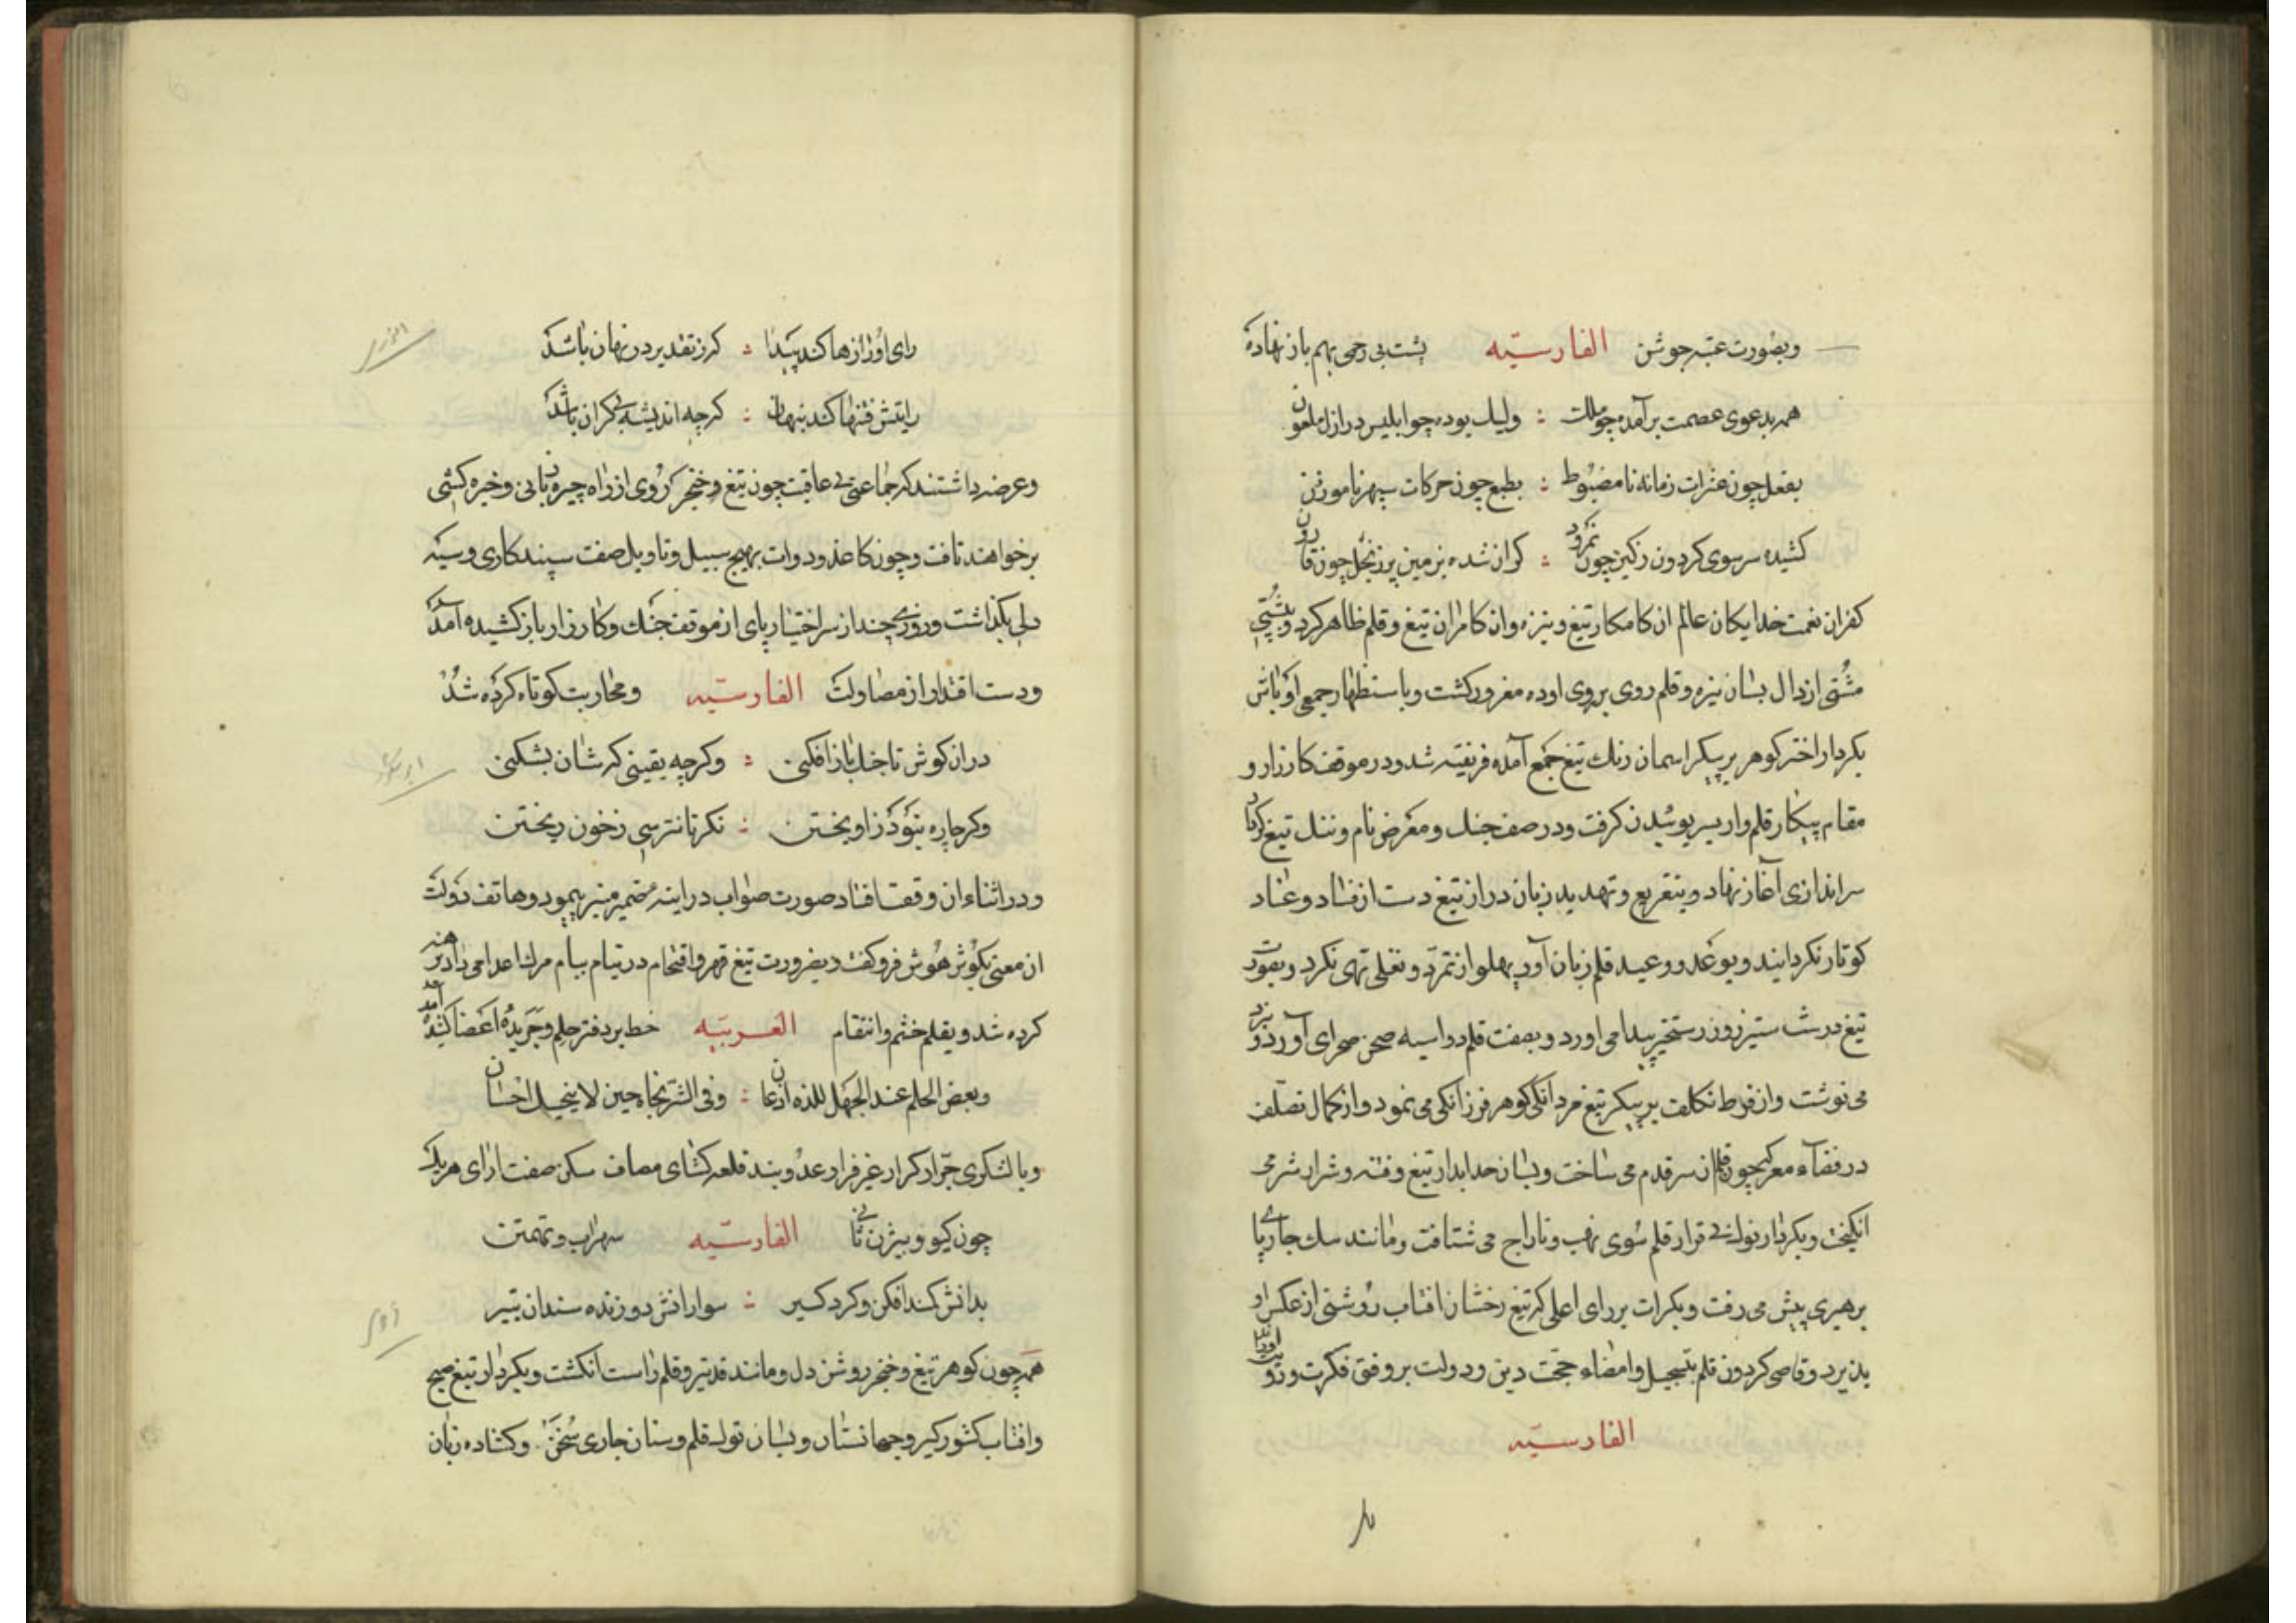 وبصورت عیبه جوشن الفارسیّه پشت بی زخمی بهم باز نهاده
همه بدعوی عصمت برآمده چو ملك : وليك بوده چو ابلیس در ازل ملعون
بفعل چون عثرات زمانه نامضبوط : بطبع چون حرکات سپهر ناموزون
کشیده سر سوی کردون زکین چون نمرود : کران شده بزمین بر زبخل چون قارون
کفران نعمت خدایکان عالم ان کامکار تیغ ونیزه وان کامران تیغ وقلم ظاهر کرد وبپشتی
مشتی ارذال بسان نیزه وقلم روی بروی اورده مغرور کشت وباستظهار جمعی اوباش
بکردار اختر کوهر بر پیکر اسمان رنك تیغ جمع آمده فریفته شد ودر موقف کارزار و
مقام پیکار قلم وار بسر پوئیدن کرفت ودر صف جنك ومعرض نام وننك تیغ کردار
سراندازی آغاز نهاد وبتقریع وتهدید زبان دراز تیغ دست از فساد وعناد
کوتاه نکردانید وبوعد ووعید قلم زبان آور پهلو از تمرّد وتغلب تهی نکرد وبقوت
تیغ درشت ستیز روز رستخیز پیدا می اورد وبصفت قلم دواسبه صحن صحرای آورد ونبرد
می نوشت واز فرط تکلف بر پیکر تیغ مردانگی کوهر فرزانکی می نمود واز کمال تصلّف
در فضآء معرکه چون قلم از سر قدم می ساخت وبسان حد ابدار تیغ وفتنه وشرار شر می
انکیخت وبکردار نوك بی قرار قلم سوی نهب وتاراج می شتافت ومانند سك جاریا
برهبری پیش می رفت وبکرات بر رای اعلی که تیغ رخشان افتاب روشنی از عکس او
پذیرد وقاصی کردون قلم بتسجیل وامضاء حجت دین ودولت بر وفق فکرت ورویت او راند
الفارسیّه
رای او رازها کند پیدا : کرز تقدیر در نهان باشد
رایتش فتنها کند پنهان : کرچه اندیشه بی کران باشد
وعرضه داشتند که جماعتی بی عاقبت چون تیغ وخنجر کز روی از راه چیره زبانی وخیره کشی
برخواهند تافت وچون کاغذ ودوات بهیچ سبیل وتاویل صفت سپیدکاری وسیه
دلی بگذاشت وروزی چند از سر اختیار پای از موقف جنك وکارزار باز کشیده آمد
ودست اقتدار از مصاولت الفارسیّه ومحاربت کوتاه کرده شد
دران کوش تا جنك باز افکنی : وکرچه یقینی که شان بشکنی
وکر چاره نبود ز اویختن : نکر تا نترسی زخون ریختن
ودر اثناء ان وقفت افتاد صورت صواب در اینه ضمیر منیر بنمود وهاتف دولت
ان معنی بکوش هوش فرو کفت وبضرورت تیغ قهر واقتحام در نیام بیام مرك اعدا می داد برهنه
کرده شد وبقلم خشم وانتقام العربیّه خط بر دفتر حلم وجریدهٔ اغضا کشیده آمد
وبعض الحلم عند الجهل للذلة اذعان : وفی الشر نجاة حین لا ینجیك احسان
وبا لشکری جرّار کرار غیر فرار عدو بند قلعه کشای مصاف سکن صفت ارای هر یك
چون کیو وبیژن ثانی الفارسیّه سهراب وتهمتن
بدانش کند افکن وکرد کیر : سوارانش دوزنده سندان بتیر
همه چون کوهر تیغ وخنجر روشن دل ومانند قد تیر وقلم راست انکشت وبکردار تیغ صبح
وافتاب کشور کیر وجهانستان وبسان نوك قلم وسنان جاری سخن وکشاده زبان